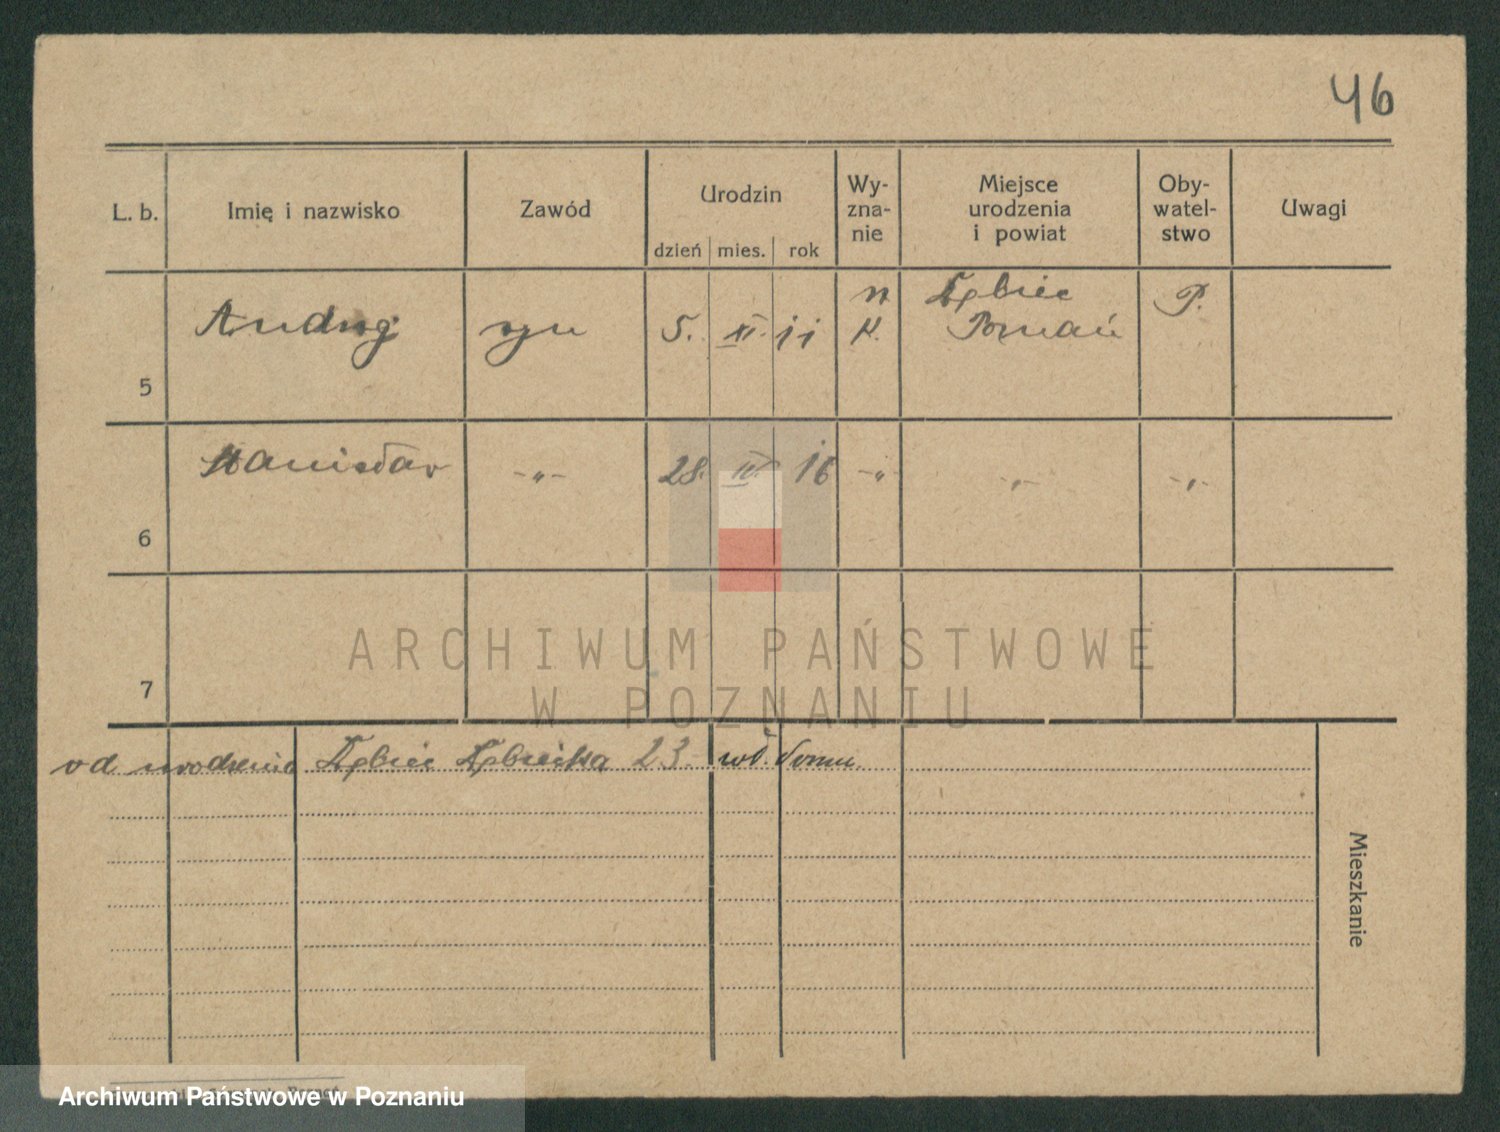 46
L. b. Imię i nazwisko Zawód Urodzin dzień mies. rok Wy-zna-nie Miejsce urodzenia i powiat Oby-watel-stwo Uwagi
5 syn 5. XI. 11 K. Dębiec Poznań P.
6 Stanisław -„- 28. IV. 16 -„- -„- -„-
7
ARCHIWUM PAŃSTWOWE
W POZNANIU
od urodzenia Dębiec Dębiecka 23. wł. domu.
Mieszkanie
Archiwum Państwowe w Poznaniu